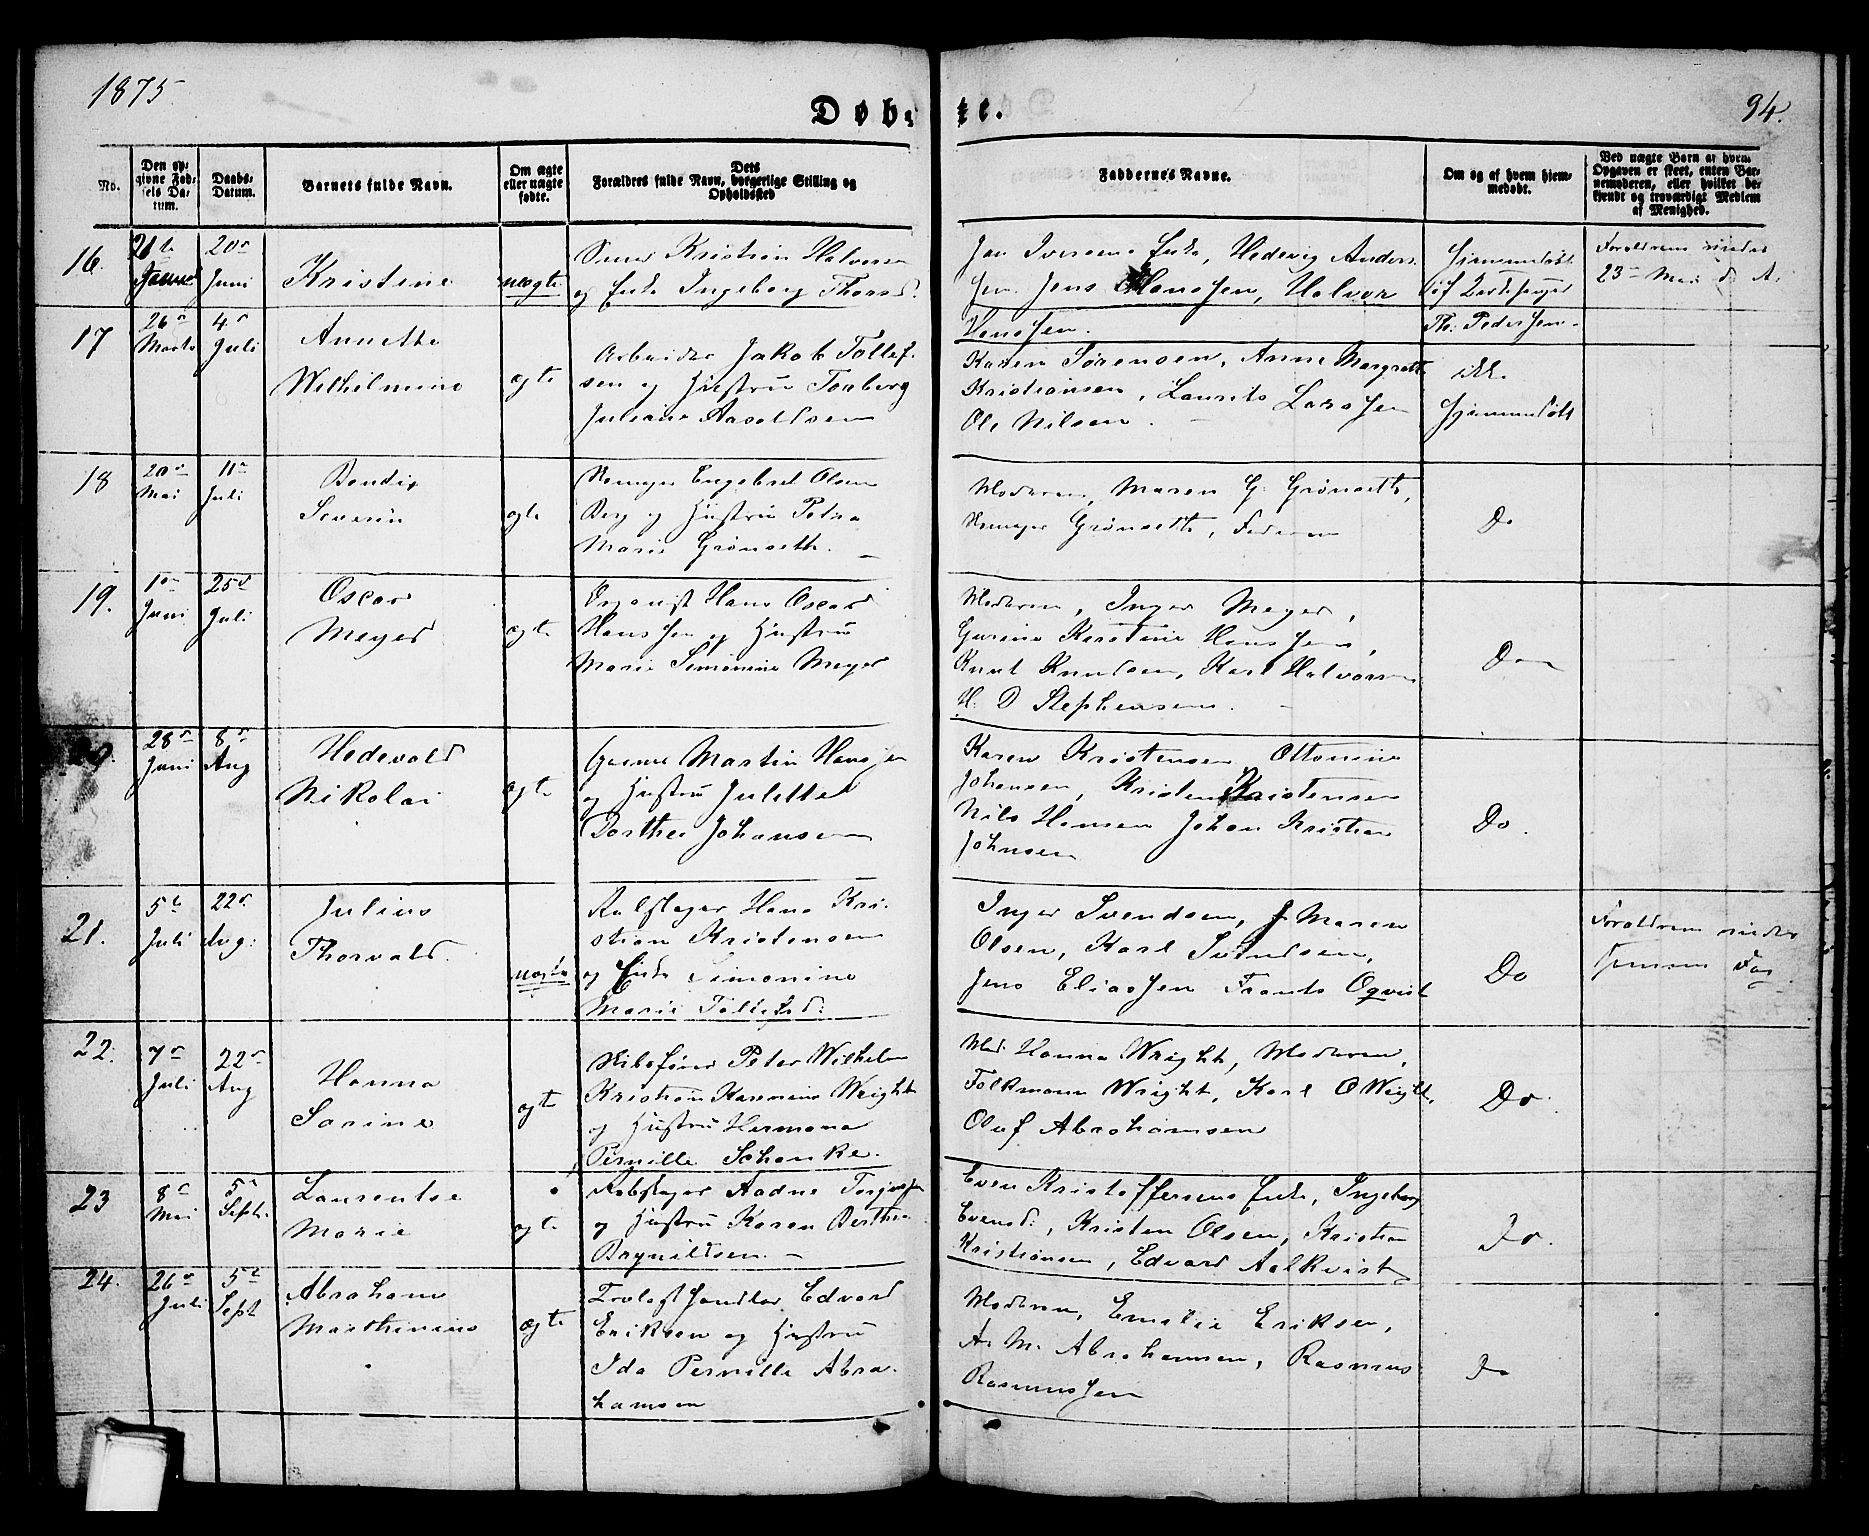 1875.
Døbte.
94.
No.
Den opgivne Fødsels Datum.
Daabs-Datum.
Barnets fulde Navn.
Om ægte eller uægte født.
Dets Forældres fulde Navn, borgerlige Stilling og Opholdssted
Faddernes Navne.
Om og af hvem hjemmedøbt.
Ved uægte Børn af hvem Opgaven er skeet, enten Barnemoderen, eller hvilket bekjendt og troværdigt Medlem af Menighed.
16.
20de
Juni
Kristine
uægte
Kristian Halvorsen
og Enke Ingeborg Thorsd.
Jan Iversens Enke, Hedevig Ander-
sen, Jens Hanssen, Halvor
Hanssen.
Hjemmedøbt
af
Th: Pedersen
Forældrene
23de Mai d. A.
17
26de
Marts
4de
Juli
Annette
Wilhelmine
ægte
Arbeider Jakob Tollef-
sen og Hustru Torberg
Juliane Aasoldsen
Karen Sørensen, Anne Margrethe
Kristiansen, Laurits Larssen
Ole Nilsen.
ikke
hjemmedøbt
18
20de
Mai
11te
Juli
Bendix
Severin
ægte
Engebret Olsen
Berg og Hustru Petra
Marie Grønseth.
Moderen, Maren G. Grønseth,
Grønseth, Faderen
Do
19.
1ste
Juni
25de
Juli
Oscar
Meyer
ægte
Organist Hans Oscar
Hanssen og Hustru
Marie Simonine Meyer
Moderen, Inger Meyer,
Gurine Karstine Hanssen,
Knut Knudsen, Karl Halvorsen
H. D Stephensen.
Do
20.
28de
Juni
8de
Aug
Hedevald
Nikolai
ægte
Martin Hanssen
og Hustru Julitte
Dorthea Johansen
Karen Kristensen Ottomine
Johansen, Kristen Kristensen
Nils Hansen Johan Kristian
Johnsen
Do.
21.
5te
Juli
22de
Aug:
Julius
Thorvald.
uægte
Hans Kri-
stian Kristensen
og Enke Simonine
Marie Tollefsd:
Inger Svendsen, Maren
Olsen, Karl Svendsen,
Jens Eliassen Frants Oqvist
Do
Forældrene
22.
7de
Juli
22de
Aug
Hanna
Sarine
ægte
Skibsfører Peter Wilhelm
Kristian Wright
og Hustru Hermana
Pernille Schanke.
Hanna Wright, Moderen,
Folkmann Wright, Karl O Wright,
Oluf Abrahamsen
Do.
23
8de
Mai
5te
Septr.
Laurentse
Marie
ægte
Aadne Torjussen
og Hustru Karen Berthea
Brynildsen.
Even Kristoffersens Enke, Ingeborg
Evensd:, Kristen Olsen, Kristian
Kristiansen, Edvard Aalkvist
Do.
24.
26de
Juli
5te
Sept
Abraham
Marthinius
ægte
Edvard
Eriksen og Hustru
Ida Pernille Abra-
hamsen
Moderen, Emelie Eriksen,
A. M. Abrahamsen, Rasmus
Rasmussen
Do